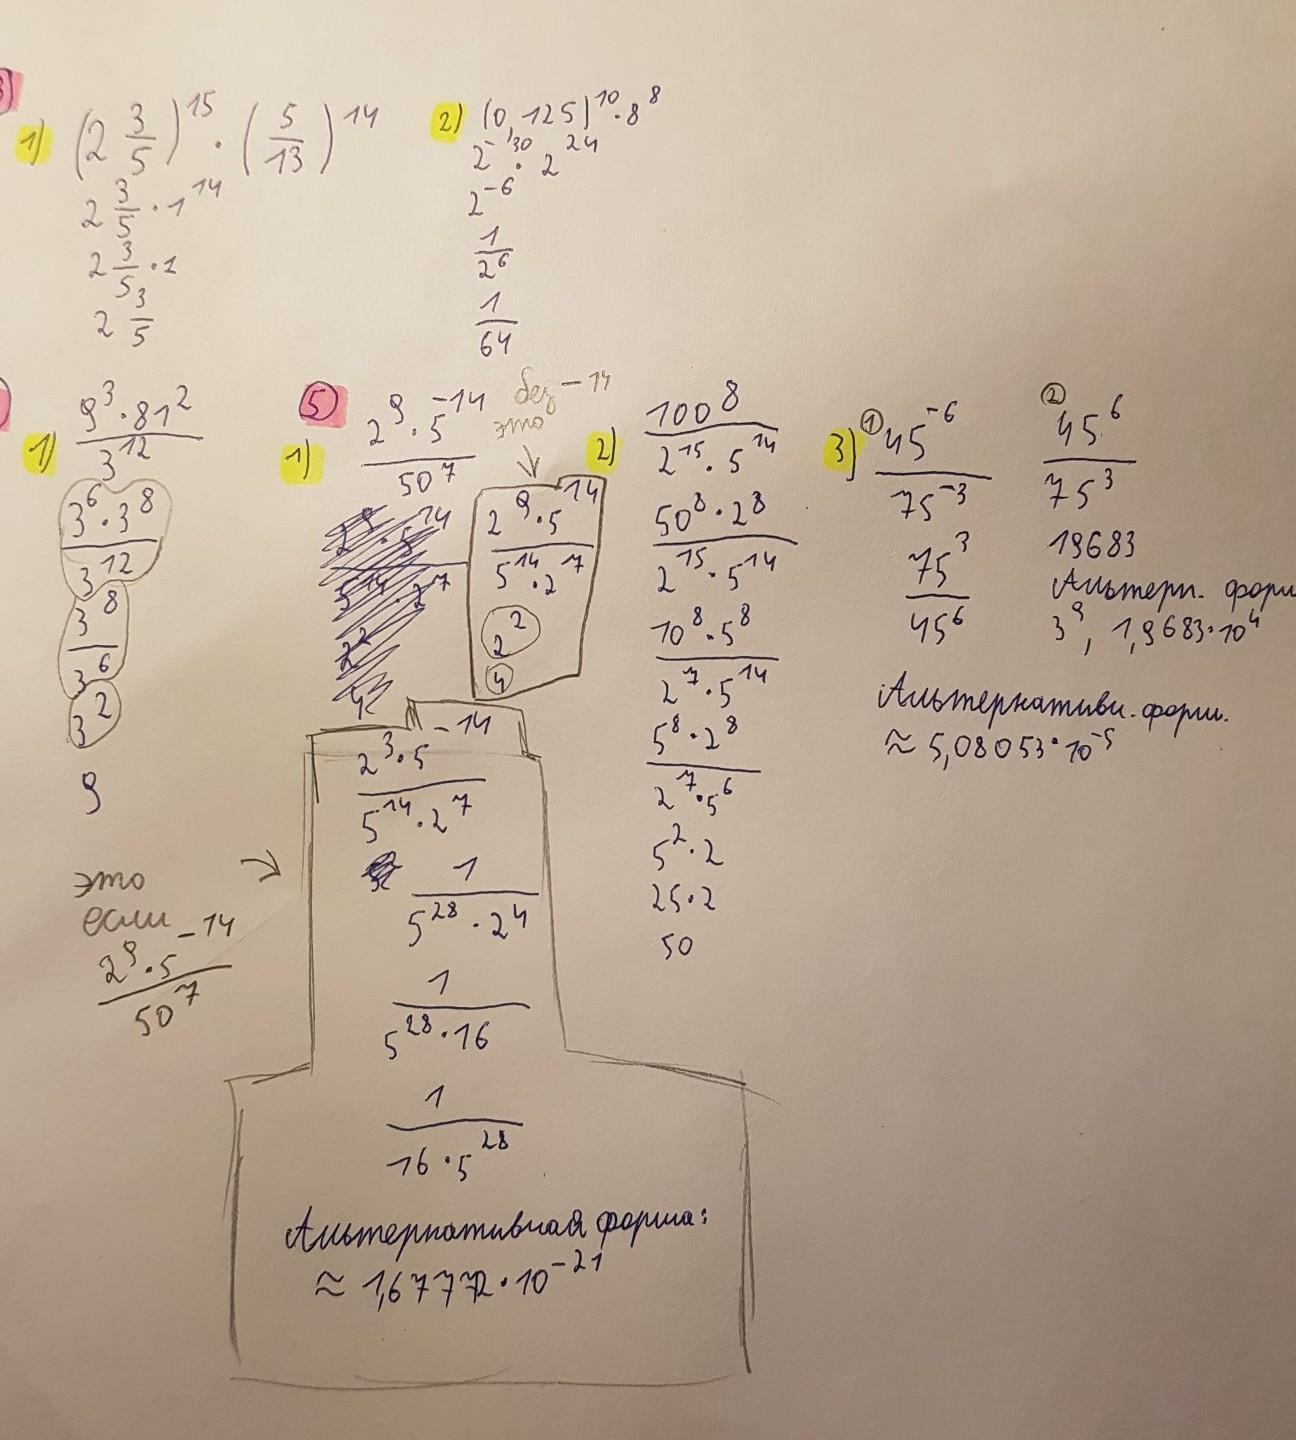 3)
1) (2 3/5)^15 · (5/13)^14
2 3/5 · 1^14
2 3/5 · 1
2 3/5
2) (0,125)^10 · 8^8
2^-30 · 2^24
2^-6
1/2^6
1/64
1) 9^3 · 81^2 / 3^12
3^6 · 3^8 / 3^12
3^8 / 3^6
3^2
9
5
1) 2^9 · 5^-14 / 50^7
без -14
это
2^9 · 5^14 / 5^14 · 2^7
2^2
4
это
если
2^9 · 5^-14 / 50^7
2^3 · 5^-14 / 5^14 · 2^7
1 / 5^28 · 2^4
1 / 5^28 · 16
1 / 16 · 5^28
Альтернативная форма:
≈ 1,67772 · 10^-21
2) 100^8 / 2^15 · 5^14
50^8 · 2^8 / 2^15 · 5^14
10^8 · 5^8 / 2^7 · 5^14
5^8 · 2^8 / 2^7 · 5^6
5^2 · 2
25 · 2
50
3) ① 45^-6 / 75^-3
75^3 / 45^6
Альтернативн. форм.
≈ 5,08053 · 10^-5
② 45^6 / 75^3
19683
Альтерн. форм
3^9, 1,9683 · 10^4